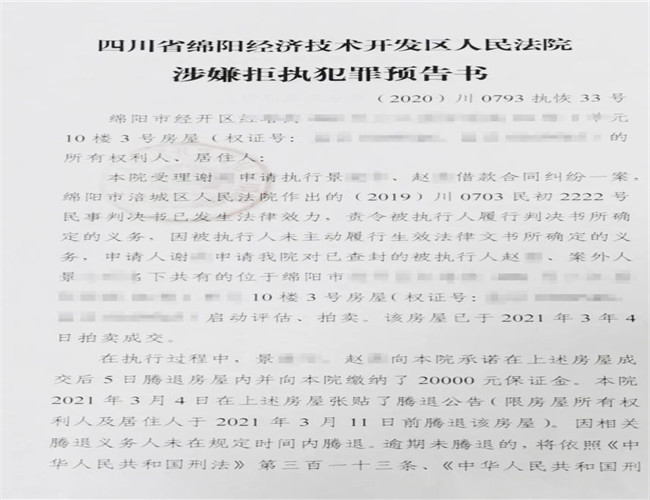 四川省绵阳经济技术开发区人民法院
涉嫌拒执犯罪预告书
（2020）川0793执恢33号
绵阳市经开区 元
10楼3号房屋（权证号： 的
所有权利人、居住人：
本院受理谢 申请执行景 、赵 借款合同纠纷一案，
绵阳市涪城区人民法院作出的（2019）川0703民初2222号
民事判决书已发生法律效力，责令被执行人履行判决书所确
定的义务，因被执行人未主动履行生效法律文书所确定的义
务，申请人谢 申请我院对已查封的被执行人赵 、案外人
景 名下共有的位于绵阳市
10楼3号房屋（权证号：
启动评估、拍卖。该房屋已于2021年3月4
日拍卖成交。
在执行过程中，景 、赵 向本院承诺在上述房屋成
交后5日腾退房屋内并向本院缴纳了20000元保证金。本院
2021年3月4日在上述房屋张贴了腾退公告（限房屋所有权
利人及居住人于2021年3月11日前腾退该房屋）。因相关
腾退义务人未在规定时间内腾退。逾期未腾退的，将依照《中
华人民共和国刑法》第三百一十三条、《中华人民共和国刑